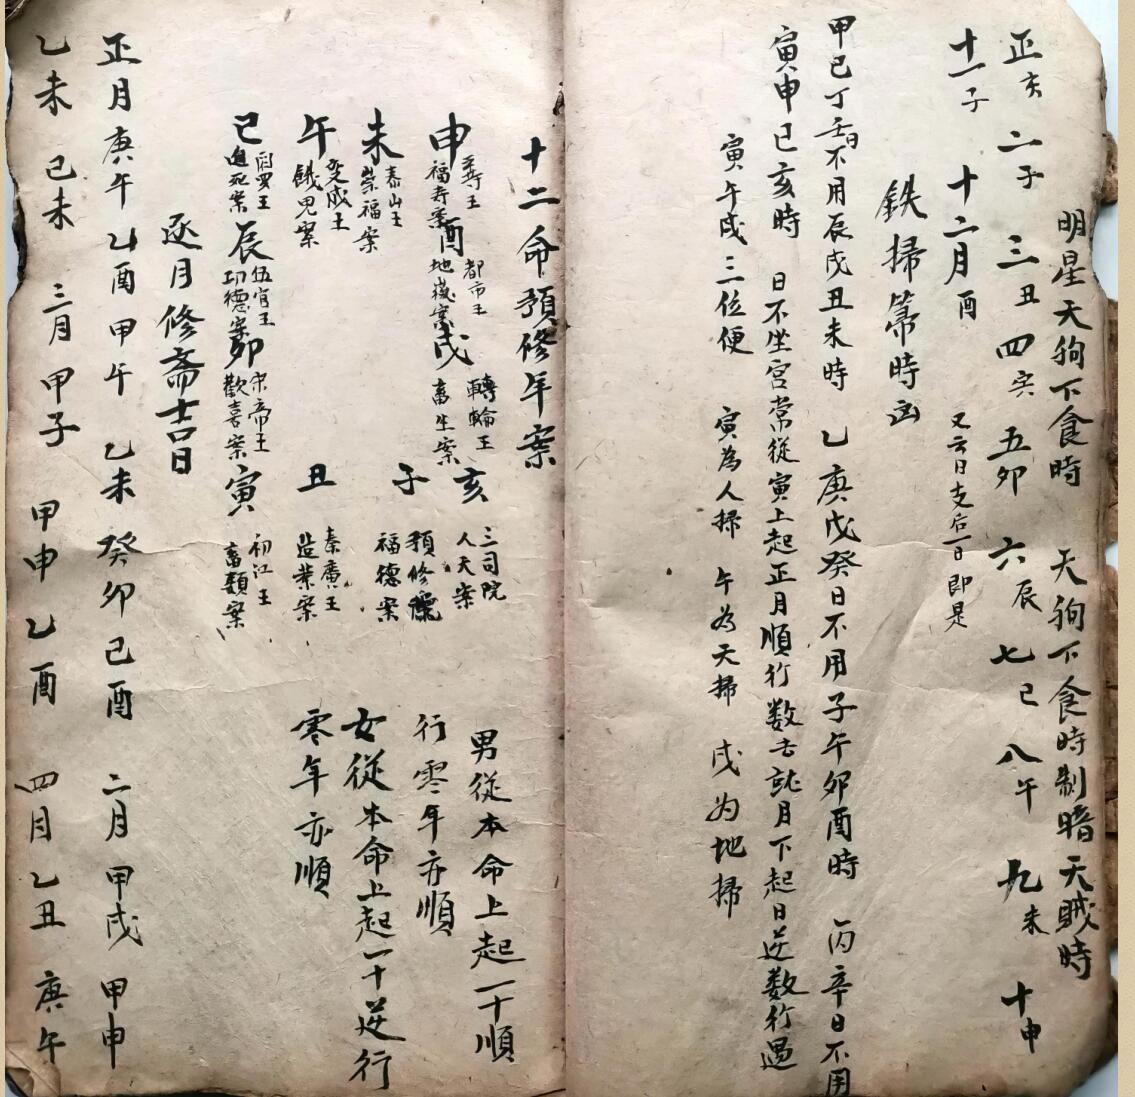 明星天狗下食時　天狗下食時制暗天賊時
正亥　二子　三丑　四寅　五卯　六辰　七巳　八午　九未　十申
十一子　十二月酉　又云日支后一日即是
鉄掃箒時凶
甲己丁壬日不用辰戌丑未時　乙庚戊癸日不用子午卯酉時　丙辛日不用
寅申巳亥時　日不坐宮常從寅上起正月順行数去就月下起日逆数行遇
寅午戌三位便　寅為人掃　午为天掃　戌为地掃
十二命預修年案
申　平等王　福寿案　酉　都市王　地獄案　戌　轉輪王　畜生案　亥　三司院　人天案
未　泰山王　崇福案　子　預修院　福德案
午　变成王　餓鬼案　丑　秦廣王　造業案
巳　閻羅王　追死案　辰　伍官王　功德案　卯　宋帝王　歡喜案　寅　初江王　畜類案
男從本命上起一十順
行零年亦順
女從本命上起一十逆行
零年亦順
逐月修斋吉日
正月庚午　乙酉　甲午　乙未　癸卯　己酉　二月甲戌　甲申
乙未　己未　三月甲子　甲申　乙酉　四月乙丑　庚午